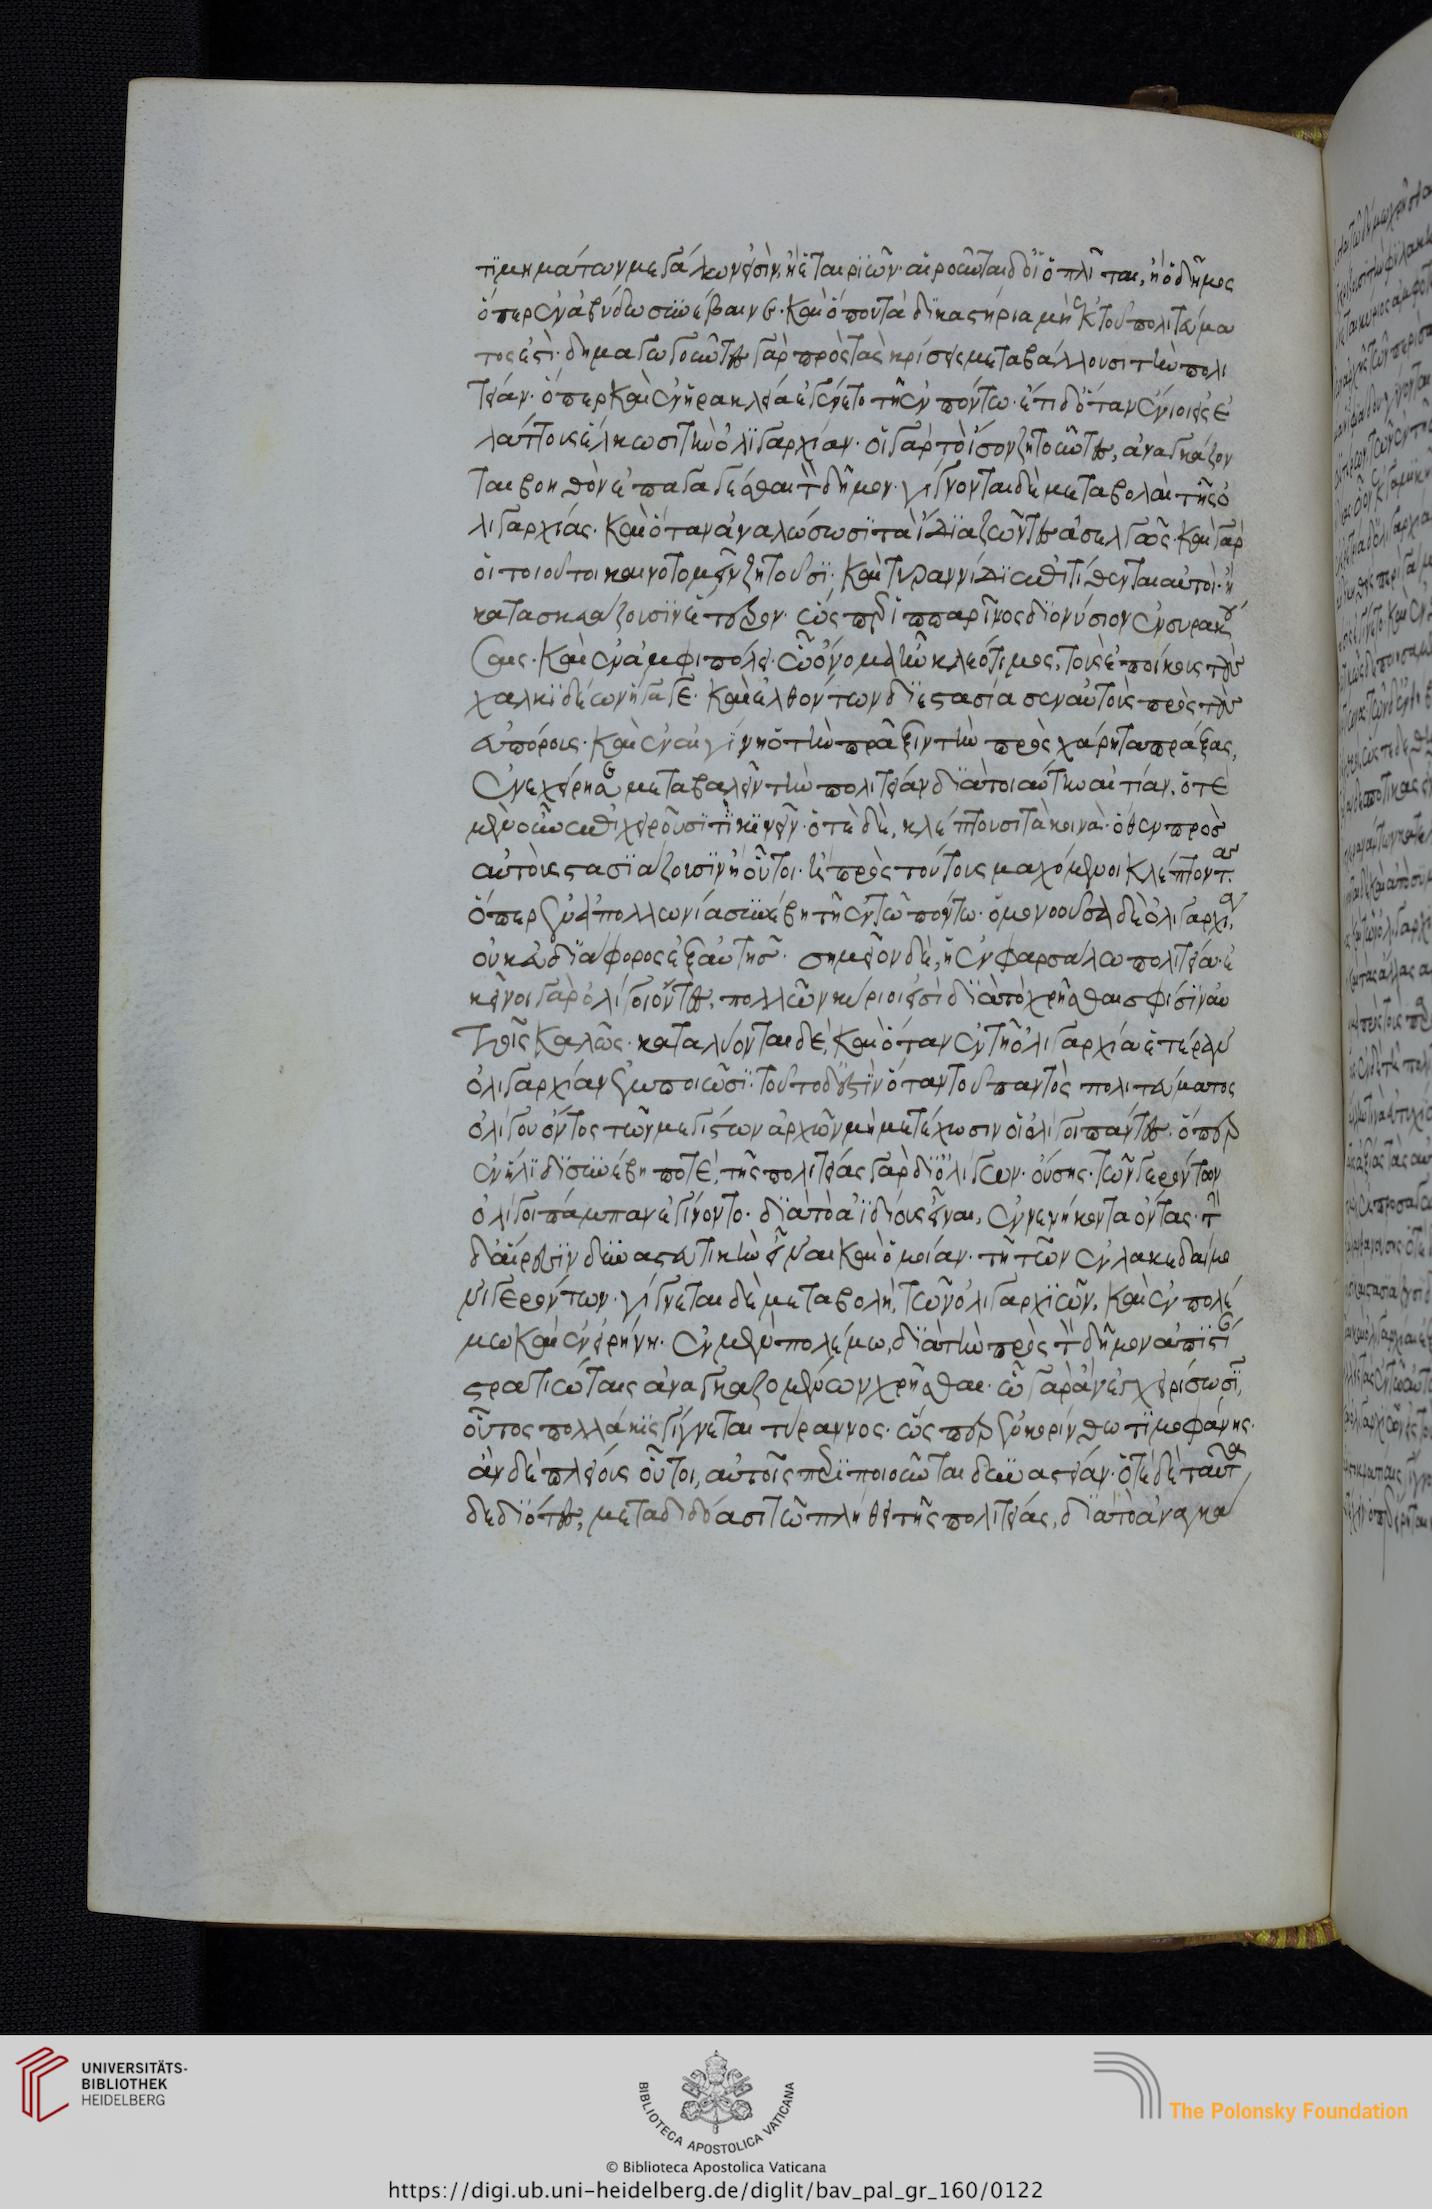 τιμημάτων μεγάλων εἰσὶν, ἢ ἑταιριῶν· αἱροῦνται δ οἱ ὁπλῖται, ἢ ὁ δῆμος
ὅπερ ἐν ἀβύδω συνέβαινε· καὶ ὅπου τὰ δικαστήρια μὴ ἐκ τοῦ πολιτεύμα
τος ἐστί· δημαγωγοῦντες γὰρ πρὸς τὰς κρίσεις μεταβάλλουσι τὴν πολι
τείαν· ὅπερ καὶ ἐν ἡρακλεία ἐγένετο τῆ ἐν πόντω· ἔτι δ ὅταν ἔνιοι εἰς ἐ
λάττους ἕλκωσι τὴν ὀλιγαρχίαν· οἱ γὰρ τὸ ἴσον ζητοῦντες, ἀναγκάζον
ται βοηθὸν ἐπαγαγέσθαι τὸν δῆμον· γίγνονται δὲ μεταβολαὶ τῆς ὀ
λιγαρχίας· καὶ ὅταν ἀναλώσωσι τὰ ἴδια ζῶντες ἀσελγῶς· καὶ γὰρ
οἱ τοιοῦτοι καινοτομεῖν ζητοῦσι· καὶ τυραννίδι ἐπιτίθενται αὐτοὶ· ἢ
κατασκευάζουσιν ἕτερον· ὡς περ ἱππαρῖνος διονύσιον ἐν συρακού
σαις· καὶ ἐν ἀμφιπόλει· ὧ ὄνομα ἦν κλεότιμος, τοὺς ἐποίκους τοὺς
χαλκιδέων ἤγαγε· καὶ ἐλθόντων διεστασίασεν αὐτοὺς πρὸς τοὺς
εὐπόρους· καὶ ἐν αἰγίνη ὁ τὴν πρᾶξιν τὴν πρὸς χάρητα πράξας,
ἐνεχείρησε μεταβαλεῖν τὴν πολιτείαν διὰ τοιαύτην αἰτίαν, ὁτὲ
μὲν οὖν ἐπιχειροῦσί τι κινεῖν· ὁτὲ δὲ, κλέπτουσι τὰ κοινά· ὅθεν πρὸς
αὐτοὺς στασιάζουσιν ἢ οὗτοι· ἢ πρὸς τούτους μαχόμενοι κλέπτοντας
ὅπερ ἐν ἀπολλωνία συνέβη τῆ ἐν τῶ πόντω· ὁμονοοῦσα δὲ ὀλιγαρχία,
οὐκ εὐδιάφορος ἐξ αὐτῆς· σημεῖον δὲ, ἡ ἐν φαρσάλω πολιτεία· ἐ
κεῖνοι γὰρ ὀλίγοι ὄντες, πολλῶν κύριοι εἰσὶ διὰ τὸ χρῆσθαι σφίσιν αὐ
τοῖς καλῶς· καταλύονται δέ, καὶ ὅταν ἐν τῆ ὀλιγαρχία ἑτέραν
ὀλιγαρχίαν ἐμποιῶσι· τοῦτο δ ἐστὶν ὅταν τοῦ παντὸς πολιτεύματος
ὀλίγου ὄντος τῶν μεγίστων ἀρχῶν μὴ μετέχωσιν οἱ ὀλίγοι πάντες· ὅπερ
ἐν ἤλιδι συνέβη ποτέ, τῆς πολιτείας γὰρ δι ὀλίγων· οὔσης· τῶν γερόντων
ὀλίγοι πάμπαν ἐγίνοντο· διὰ τὸ ἀϊδίους εἶναι, ἐνενήκοντα ὄντας· τὴν
δ αἵρεσιν δυναστευτικὴν εἶναι καὶ ὁμοίαν· τῆ τῶν ἐν λακεδαίμο
νι γερόντων· γίγνεται δὲ μεταβολὴ, τῶν ὀλιγαρχιῶν, καὶ ἐν πολέ
μω καὶ ἐν εἰρήνη· ἐν μὲν πολέμω, διὰ τὴν πρὸς τὸν δῆμον ἀπιστίαν
στρατιώταις ἀναγκαζομένων χρῆσθαι· ὧ γὰρ ἂν ἐγχειρίσωσι,
οὗτος πολλάκις γίγνεται τύραννος· ὥς περ ἐν κορίνθω τιμοφάνης·
ἂν δὲ πλείους οὗτοι, αὑτοῖς περιποιοῦνται δυναστείαν· ὁτὲ δὲ ταῦτα
δεδιότες, μεταδιδόασι τῶ πλήθει τῆς πολιτείας, διὰ τὸ ἀναγκά
UNIVERSITÄTS-
BIBLIOTHEK
HEIDELBERG
BIBLIOTECA APOSTOLICA VATICANA
The Polonsky Foundation
© Biblioteca Apostolica Vaticana
https://digi.ub.uni-heidelberg.de/diglit/bav_pal_gr_160/0122